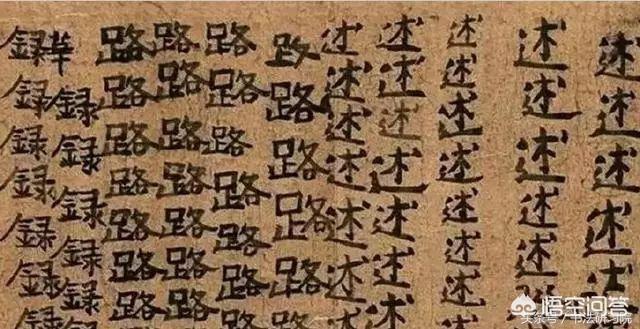 述述述述述述述
述述述述述述
述述述述述述述
述述述述述述述
述述述述述述述
路路路路路
路路路路路路
路路路路路路
路路路路路路路
華録録録録録
録録録録録録録
悟空问答
头条号/书法研习院